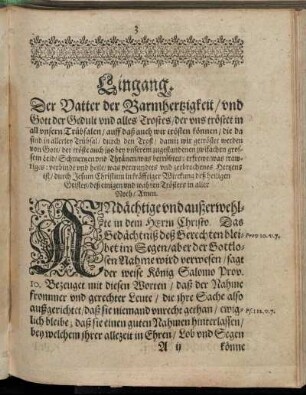 3
Eingang.
Der Vatter der Barmhertzigkeit / vnd
Gott der Gedult vnd alles Trostes / der vns tröstet in
all vnsern Trübsalen / auff daß auch wir trösten können / die da
sind in allerley Trübsal / durch den Trost / damit wir getröstet werden
von Gott / der tröste auch jetz bey vnserem zustehenden
Leid / Schmertzen vnd Thränen / was betrübtes; erfrewe was
verbinde vnd heile / was verwundetes vnd zerbrochenes Hertzens
ist / durch Jesum Christum in kräfftiger Würckung deß heiligen
Geistes / deß einigen vnd wahren Trösters in aller
Noth / Amen.
ANdächtige vnd außerwehl-
te in dem HErrn Christo. Das
Gedächtnuß deß Gerechten blei-
bet im Segen / aber der Gottlo-
sen Nahme wird verwesen / sagt
der weise König Salomo Prov.
10. Bezeuget mit diesen Worten / daß der Nahme
frommer vnd gerechter Leute / die jhre Sache also
außgerichtet / daß sie niemand vnrecht gethan / ewig-
lich bleibe; daß sie einen guten Nahmen hinterlassen /
bey welchem jhrer allezeit in Ehren / Lob vnd Segen
Prov. 10. v. 7.
Ps. 112. v. 7.
A ij könne